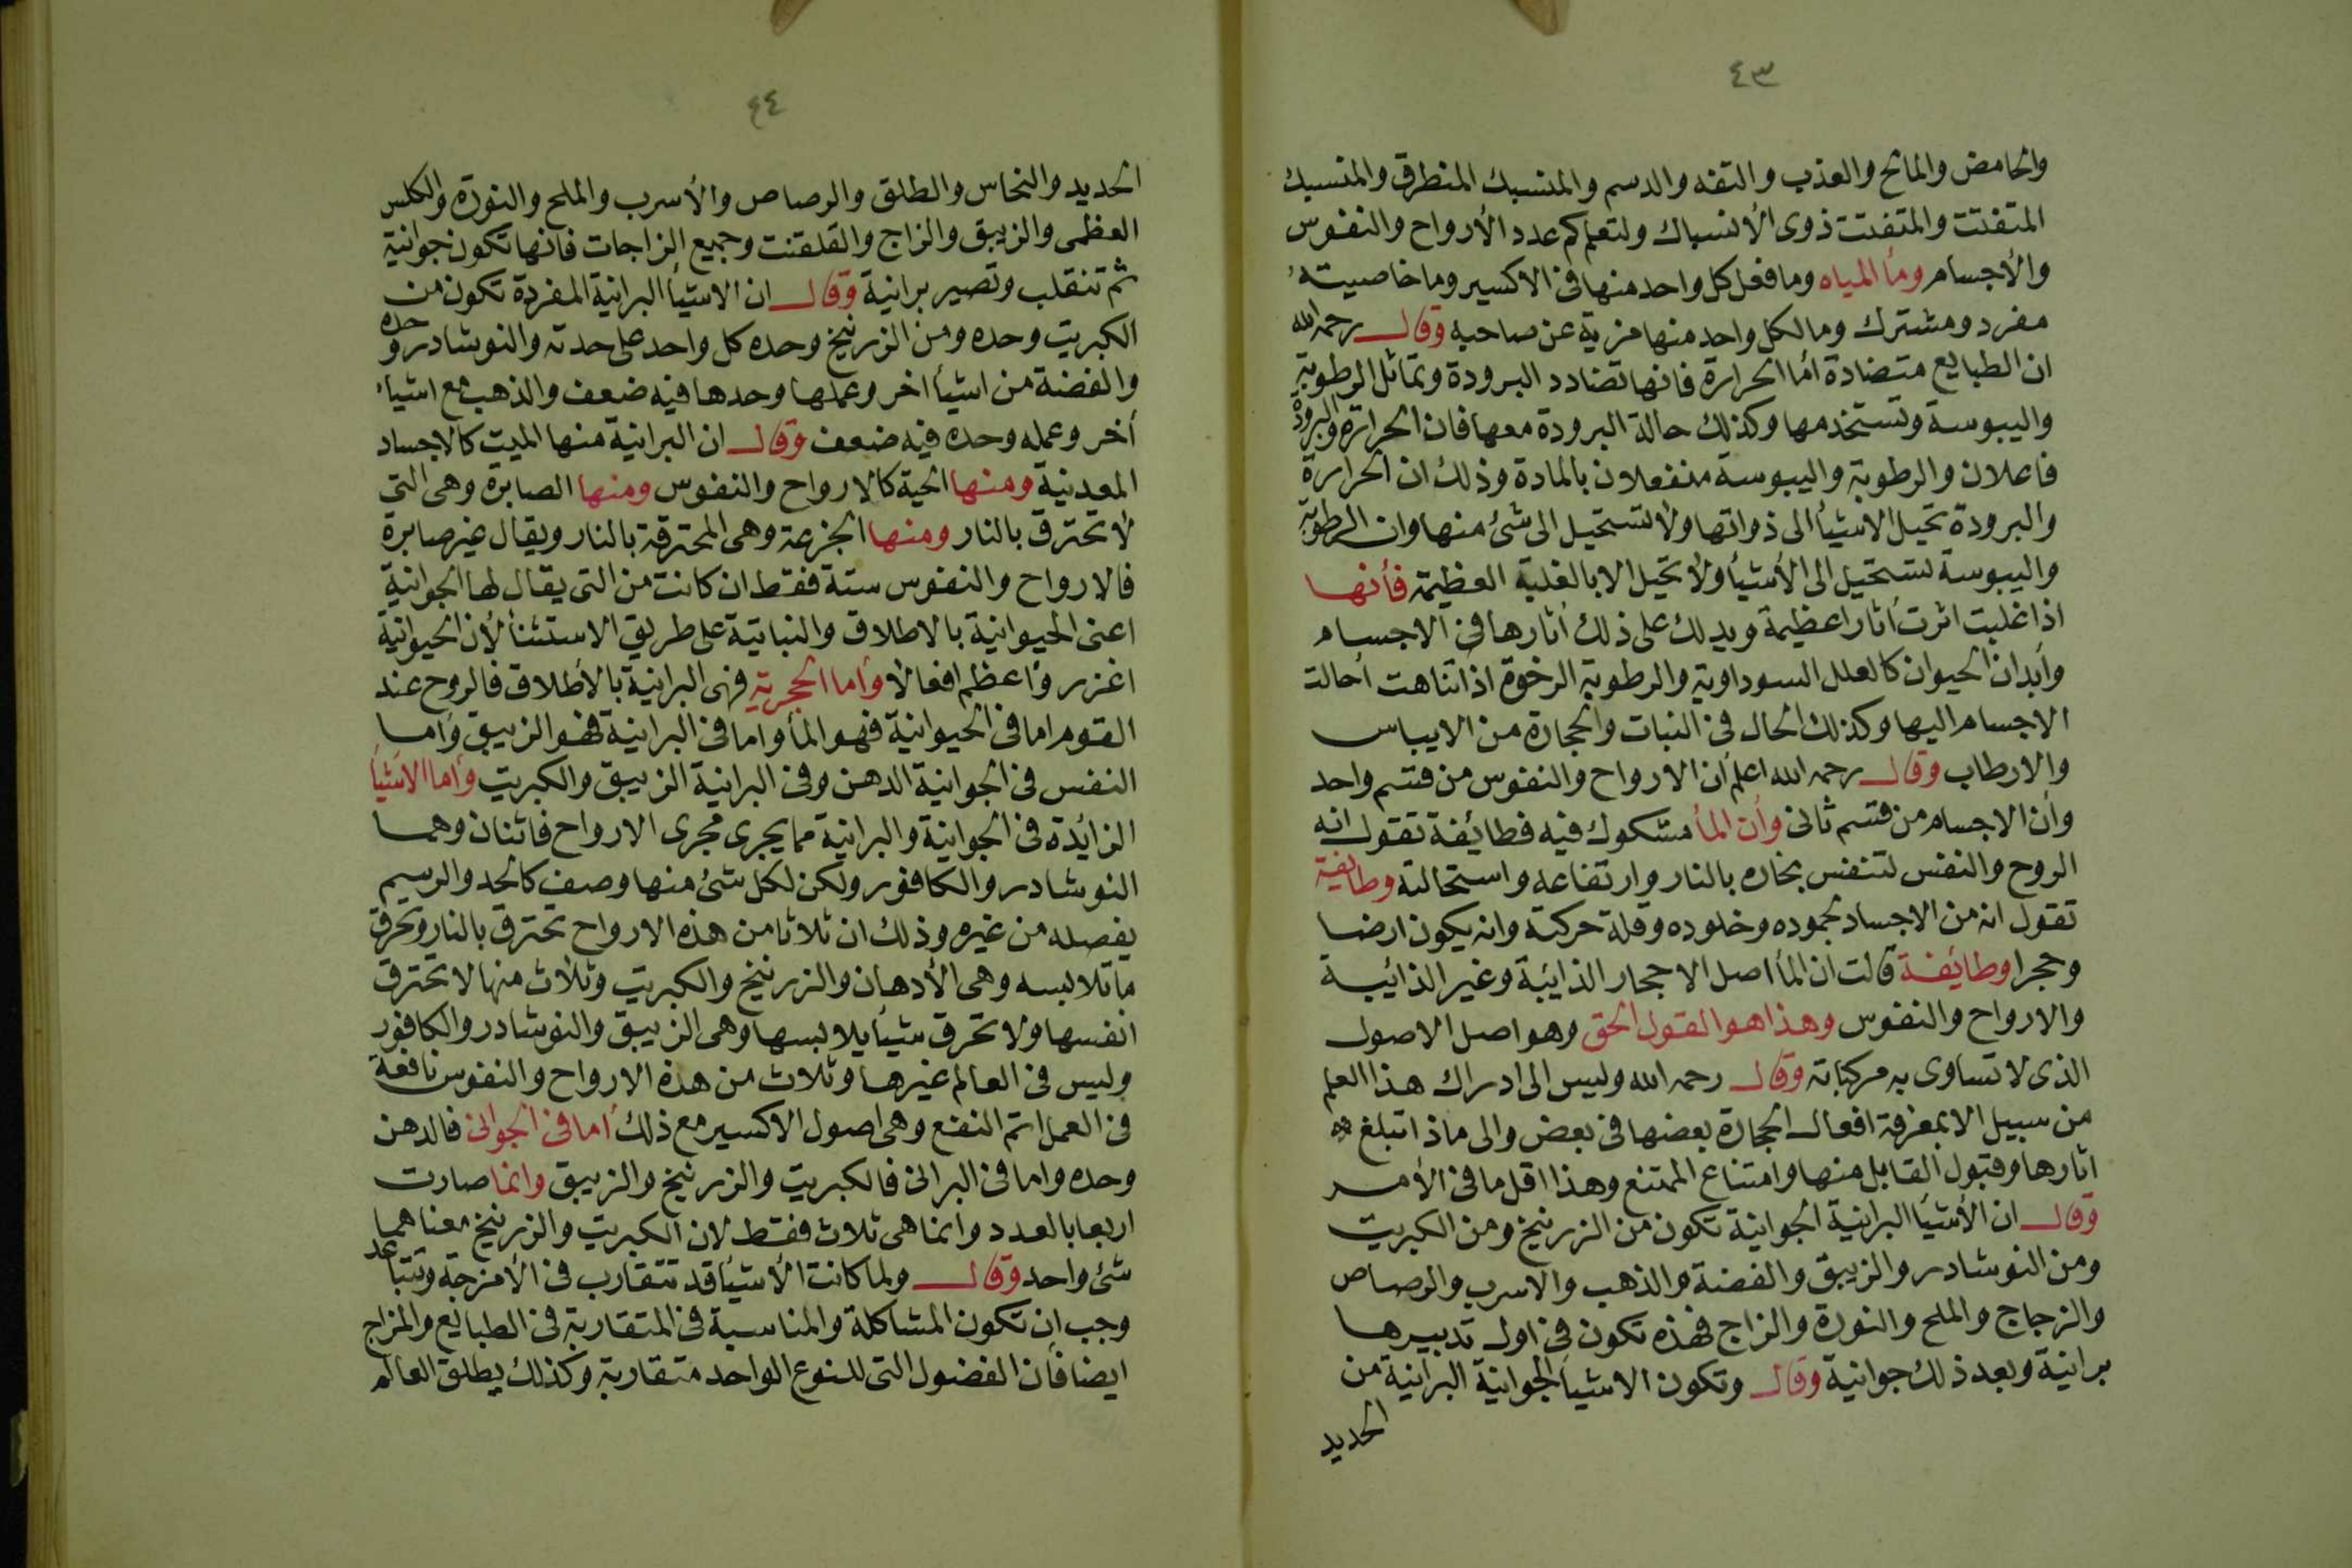 ٤٣
والحامض والمالح والعذب والتفه والدسم والمنسبك المنطرق والمنسبك
المتفتت والمتفتت ذوى الأنسباك ولتعلم كم عدد الأرواح والنفوس
والأجسام وماء المياه وما فعل كل واحد منها فى الاكسير وما خاصيته
مفرد ومشترك وما لكل واحد منها مزية عن صاحبه وقال رحمه الله
ان الطبايع متضادة أما الحرارة فانها تضادد البرودة وتماثل الرطوبة
واليبوسة وتستخدمها وكذلك حالة البرودة معها فان الحرارة والبرودة
فاعلان والرطوبة واليبوسة منفعلان بالمادة وذلك ان الحرارة
والبرودة تحيل الاشيأ الى ذواتها ولا تستحيل الى شئ منها وان الرطوبة
واليبوسة تستحيل الى الأشيأ ولا تحيل الا بالغلبة العظيمة فأنها
اذا غلبت اثرت أثارا عظيمة ويدلك على ذلك أثارها فى الاجسام
وأبدان الحيوان كالعلل السوداوية والرطوبة الرخوة اذا تناهت أحالت
الاجسام اليها وكذلك الحال فى النبات والحجارة من الايباس
والارطاب وقال رحمه الله اعلم أن الارواح والنفوس من قسم واحد
وأن الاجسام من قسم ثانى وأن المأ مشكوك فيه فطائفة تقول انه
الروح والنفس لتنفس بخاره بالنار وارتفاعه واستحالته وطايفية
تقول انه من الاجساد لجموده وخلوده وقلة حركته وانه يكون ارضا
وحجرا وطائفة قالت ان المأ اصل الاحجار الذائبة وغير الذائبة
والارواح والنفوس وهذا هو القول الحق وهو اصل الاصول
الذى لا تساوى به مركباته وقال رحمه الله وليس الى ادراك هذا العلم
من سبيل الا بمعرفة افعال الحجارة بعضها فى بعض والى ماذا تبلغ
اثارها وقبول القابل منها وامتناع الممتنع وهذا اقل ما فى الأمر
وقال ان الأشيأ البرانية الجوانية تكون من الزرنيخ ومن الكبريت
ومن النوشادر والزيبق والفضة والذهب والاسرب والرصاص
والزجاج والملح والنورة والزاج فهذه تكون فى اول تدبيرها
برانية وبعد ذلك جوانية وقال وتكون الاشيأ الجوانية البرانية من
الحديد
٤٤
الحديد والنحاس والطلق والرصاص والأسرب والملح والنورة والكلس
العظمى والزيبق والزاج والقلقنت وجميع الزاجات فانها تكون جوانية
ثم تنقلب وتصير برانية وقال ان الاشيأ البرانية المفردة تكون من
الكبريت وحده ومن الزرنيخ وحده كل واحد على حدته والنوشادر وحده
والفضة من اشيأ اخر وعملها وحدها فيه ضعف والذهب مع اشياء
أخر وعمله وحده فيه ضعف وقال ان البرانية منها الميت كالاجساد
المعدنية ومنها الحية كالارواح والنفوس ومنها الصابرة وهى التى
لا تحترق بالنار ومنها الجزعة وهى المحترقة بالنار ويقال غير صابرة
فالارواح والنفوس ستة فقط ان كانت من التى يقال لها الجوانية
اعنى الحيوانية بالاطلاق والنباتية على طريق الاستثنأ لأن الحيوانية
اغزر وأعظم افعالا وأما الحجرية فهى البرانية بالأطلاق فالروح عند
القوم اما فى الحيوانية فهو المأ واما فى البرانية فهو الزيبق وأما
النفس فى الجوانية الدهن وفى البرانية الزيبق والكبريت وأما الأشيأ
الزائدة فى الجوانية والبرانية مما يجرى مجرى الارواح فاثنان وهما
النوشادر والكافور ولكن لكل شئ منها وصف كالحد والرسم
يفصله من غيره وذلك ان ثلاثا من هذه الارواح تحترق بالنار وتحرق
ما تلابسه وهى الأدهان والزرنيخ والكبريت وثلاث منها لا تحترق
انفسها ولا تحرق شيأ يلابسها وهى الزيبق والنوشادر والكافور
وليس فى العالم غيرها وثلاث من هذه الارواح والنفوس نافعة
فى العمل اتم النفع وهى اصول الاكسير مع ذلك أما فى الجوانى فالدهن
وحده واما فى البرانى فالكبريت والزرنيخ والزيبق وانما صارت
اربعا بالعدد وانما هى ثلاث فقط لان الكبريت والزرنيخ معناهما
شئ واحد وقال ولما كانت الأشيأ قد تتقارب فى الأمزجة وتتباعد
وجب ان تكون المشاكلة والمناسبة فى المتقاربة فى الطبايع والمزاج
ايضا فأن الفضول التى للنوع الواحد متقاربة وكذلك يطلق العالم